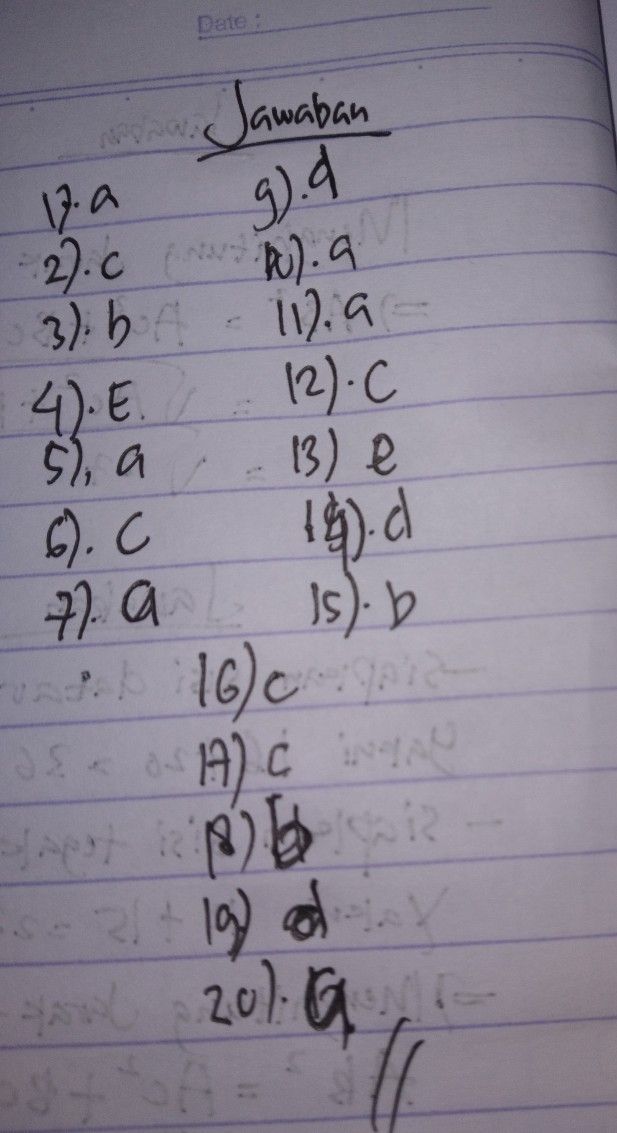 Date :
Jawaban
1). a
2). c
3). b
4). E
5). a
6). C
7). a
9). d
10). a
11). a
12). C
13) e
14). d
15). b
16) c
17) c
18) b
19) d
20). a